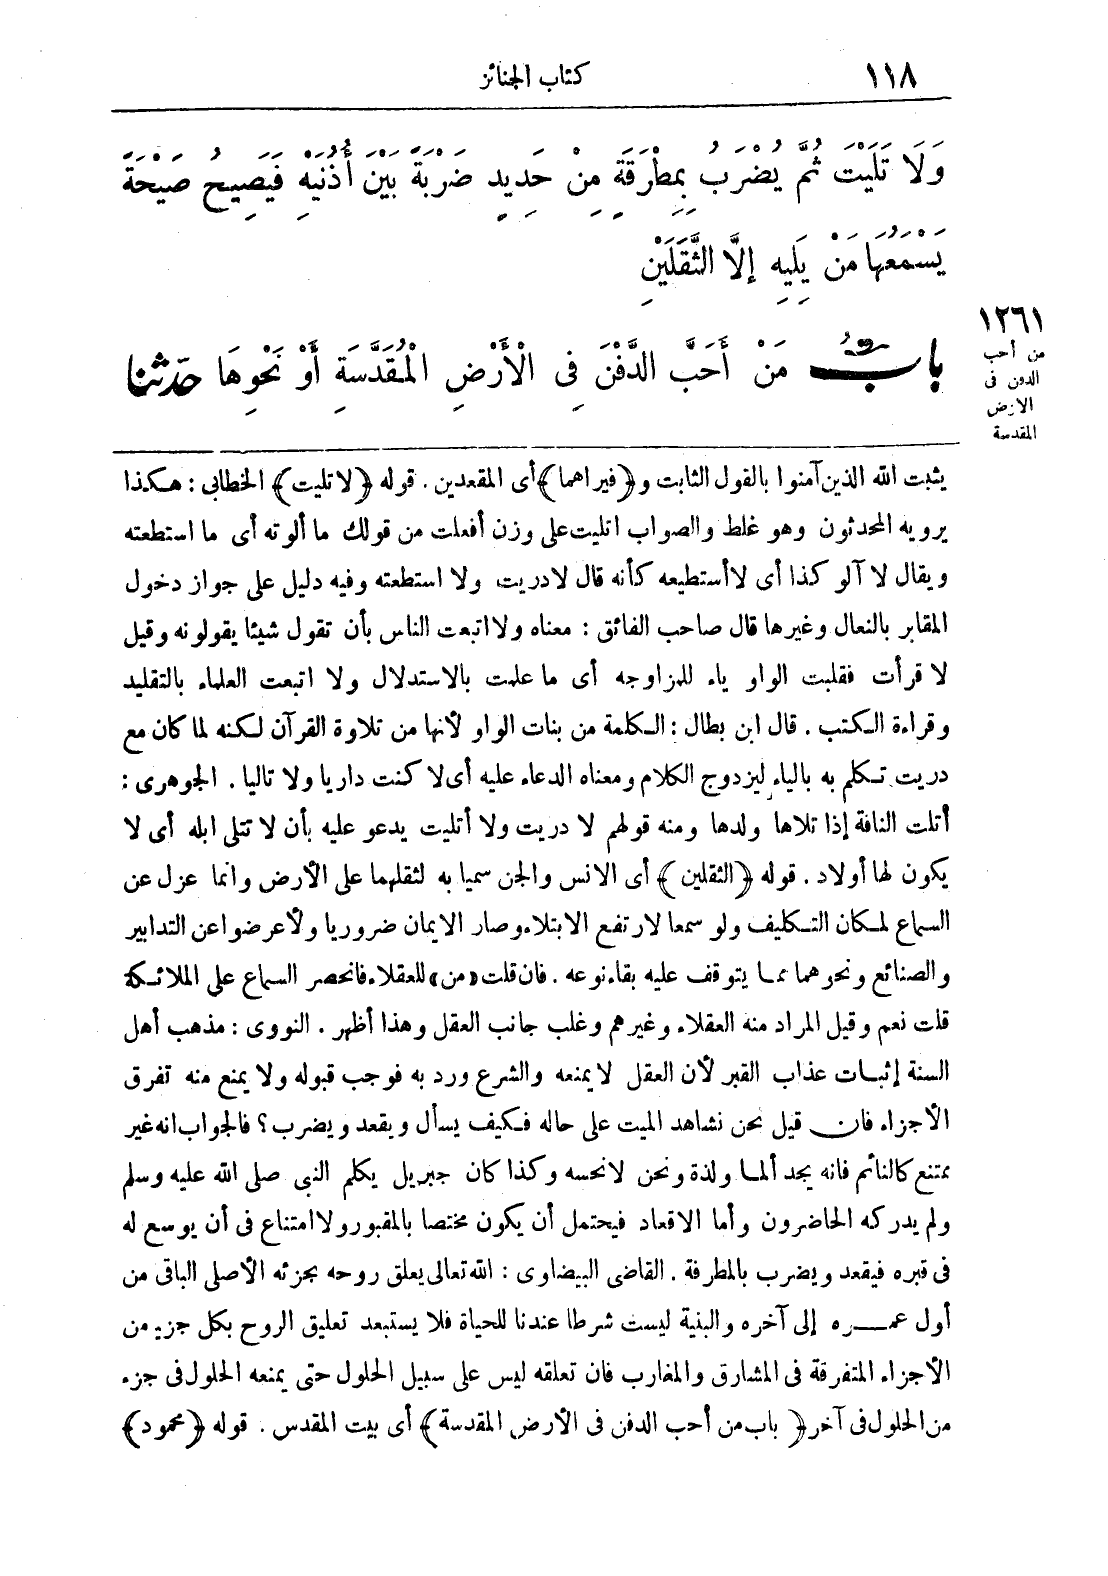 ١١٨
كتاب الجنائز
وَلَا تَلَيْتَ ثُمَّ يُضْرَبُ بِمِطْرَقَةٍ مِنْ حَدِيدٍ ضَرْبَةً بَيْنَ أُذُنَيْهِ فَيَصِيحُ صَيْحَةً
يَسْمَعُهَا مَنْ يَلِيهِ إِلَّا الثَّقَلَيْنِ
١٢٦١
من أحب
الدفن فى
الارض
المقدسة
بابُ مَنْ أَحَبَّ الدَّفْنَ فِى الْأَرْضِ الْمُقَدَّسَةِ أَوْ نَحْوِهَا حَدّثنا
يثبت الله الذين آمنوا بالقول الثابت و﴿فيراهما﴾ أى المقعدين . قوله ﴿لا تليت﴾ الخطابى : هكذا
يرويه المحدثون وهو غلط والصواب اتليت على وزن أفعلت من قولك ما ألوته أى ما استطعته
ويقال لا آلو كذا أى لا أستطيعه كأنه قال لا دريت ولا استطعته وفيه دليل على جواز دخول
المقابر بالنعال وغيرها قال صاحب الفائق : معناه ولا اتبعت الناس بأن تقول شيئا يقولونه وقيل
لا قرأت فقلبت الواو ياء للمزاوجه أى ما علمت بالاستدلال ولا اتبعت العلماء بالتقليد
وقراءة الكتب . قال ابن بطال : الكلمة من بنات الواو لأنها من تلاوة القرآن لكنه لما كان مع
دريت تكلم به بالياء ليزدوج الكلام ومعناه الدعاء عليه أى لا كنت داريا ولا تاليا . الجوهرى :
أتلت الناقة إذا تلاها ولدها ومنه قولهم لا دريت ولا أتليت يدعو عليه بأن لا تتلى ابله أى لا
يكون لها أولاد . قوله ﴿الثقلين﴾ أى الانس والجن سميا به لثقلهما على الأرض وانما عزل عن
السماع لمكان التكليف ولو سمعا لارتفع الابتلاء وصار الايمان ضروريا ولأعرضوا عن التدابير
والصنائع ونحوهما مما يتوقف عليه بقاء نوعه . فان قلت «من» للعقلاء فانحصر السماع على الملائكة
قلت نعم وقيل المراد منه العقلاء وغيرهم وغلب جانب العقل وهذا أظهر . النووى : مذهب أهل
السنة إثبات عذاب القبر لأن العقل لا يمنعه والشرع ورد به فوجب قبوله ولا يمنع منه تفرق
الأجزاء فان قيل نحن نشاهد الميت على حاله فكيف يسأل ويقعد ويضرب ؟ فالجواب انه غير
ممتنع كالنائم فانه يجد ألما ولذة ونحن لا نحسه وكذا كان جبريل يكلم النبى صلى الله عليه وسلم
ولم يدركه الحاضرون وأما الاقعاد فيحتمل أن يكون مختصا بالمقبور ولا امتناع فى أن يوسع له
فى قبره فيقعد ويضرب بالمطرقة . القاضى البيضاوى : الله تعالى يعلق روحه بجزئه الأصلى الباقى من
أول عمره إلى آخره والبنية ليست شرطا عندنا للحياة فلا يستبعد تعليق الروح بكل جزء من
الأجزاء المتفرقة فى المشارق والمغارب فان تعلقه ليس على سبيل الحلول حتى يمنعه الحلول فى جزء
من الحلول فى آخر ﴿باب من أحب الدفن فى الأرض المقدسة﴾ أى بيت المقدس . قوله ﴿محمود﴾